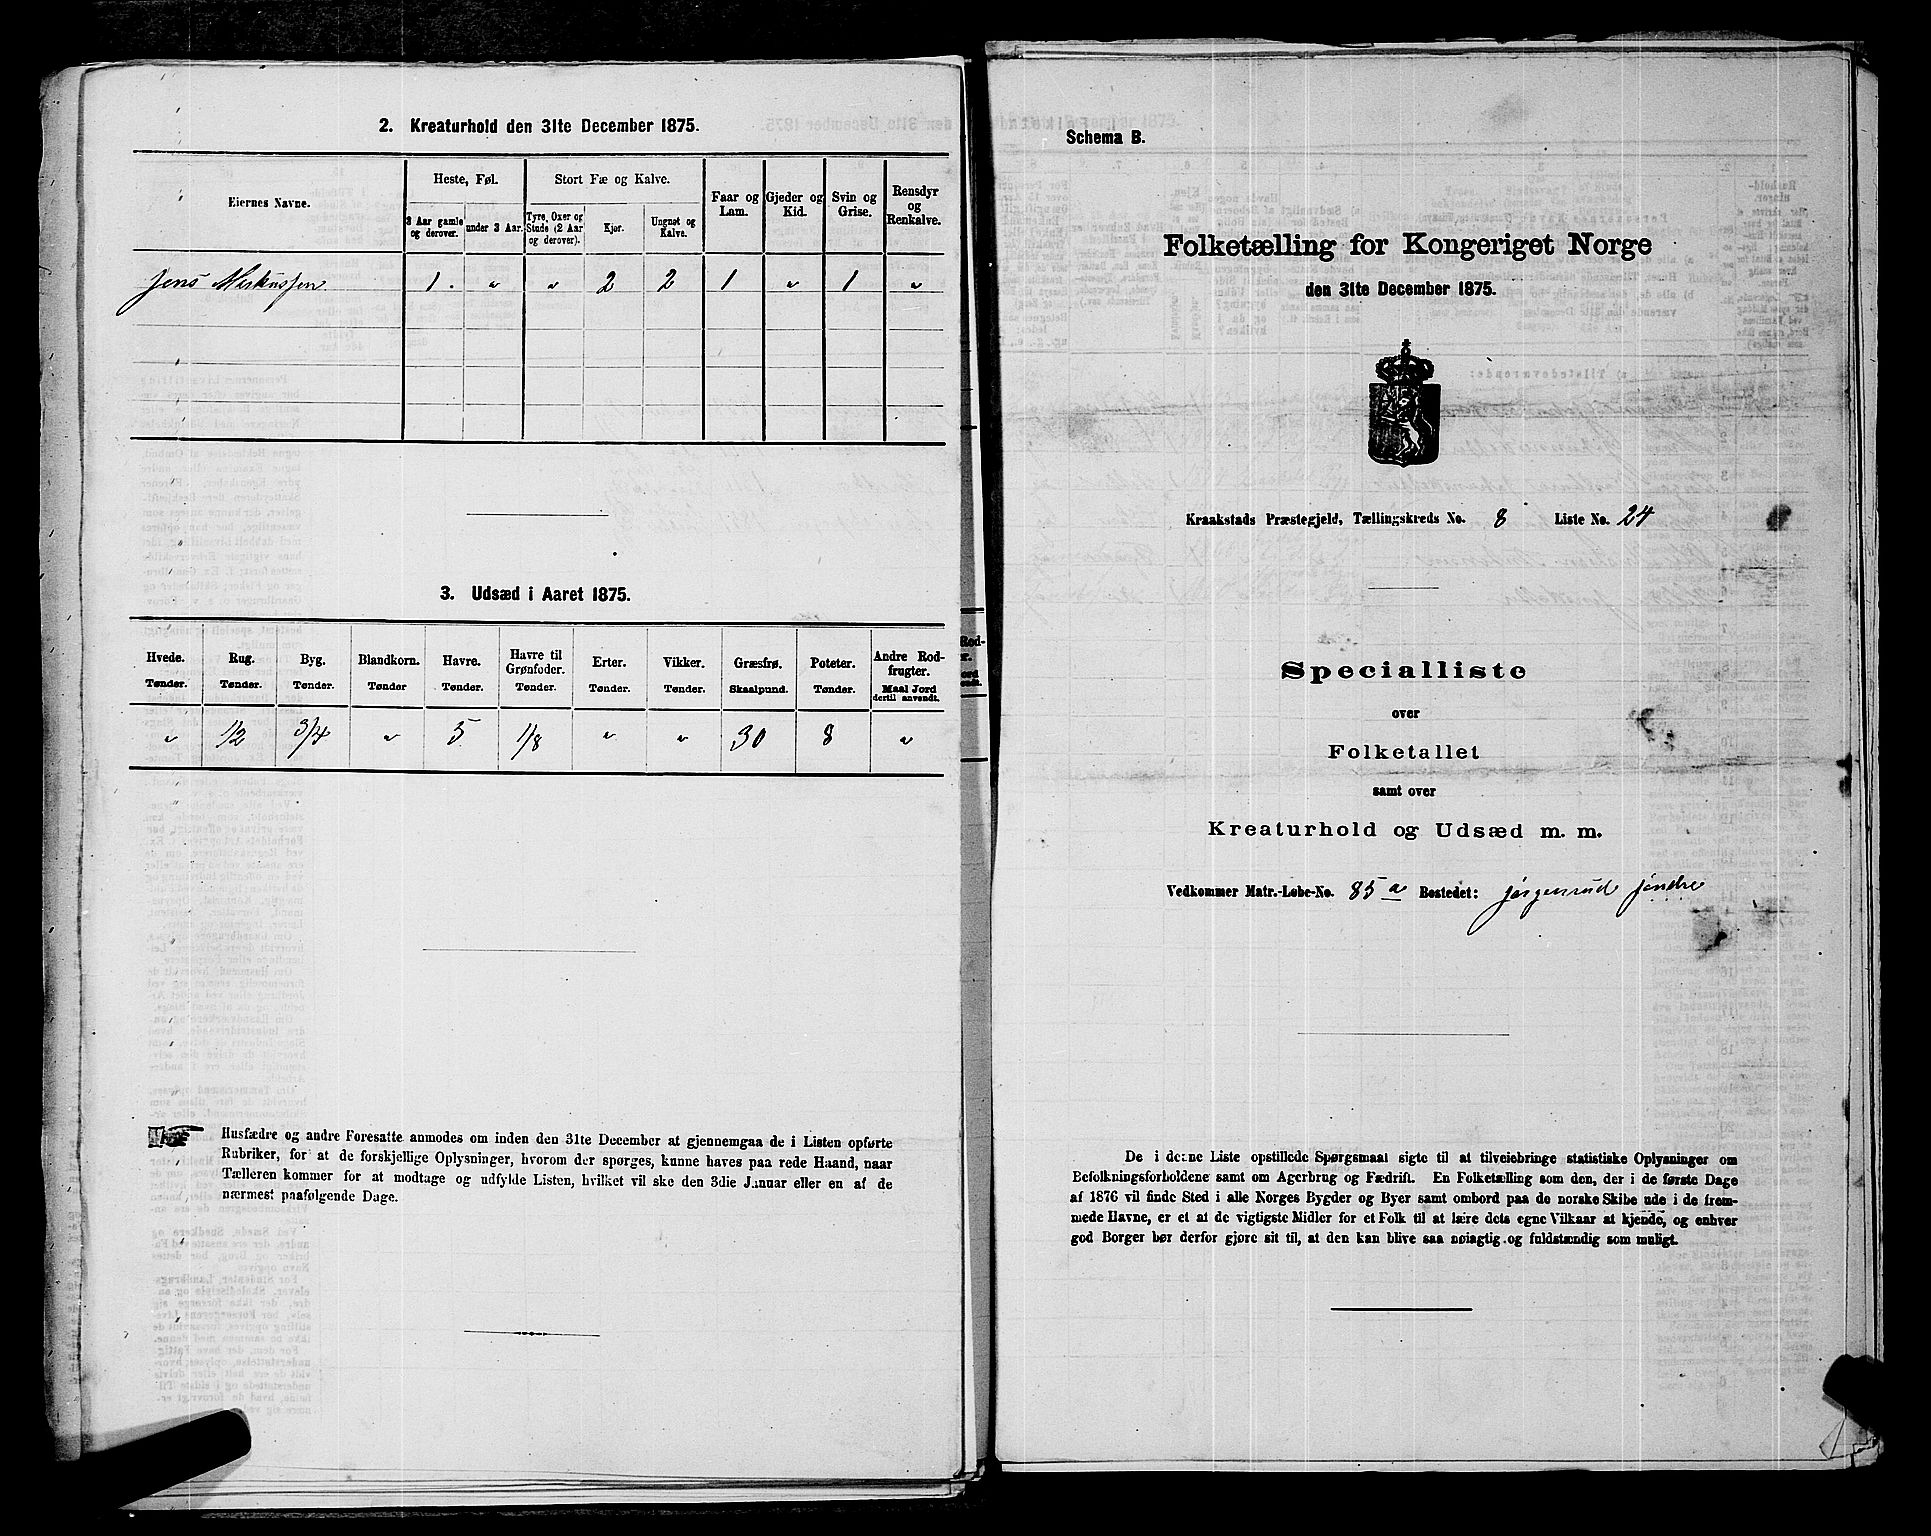 2. Kreaturhold den 31te December 1875.
Eiernes Navne.
Heste, Føl.
Stort Fæ og Kalve.
Faar og Lam.
Gjeder og Kid.
Svin og Grise.
Rensdyr og Renkalve.
3 Aar gamle og derover.
under 3 Aar.
Tyre, Oxer og Stude (2 Aar og derover).
Kjør.
Ungnøt og Kalve.
Jens 1. " " 2 2 1 " 1 "
3. Udsæd i Aaret 1875.
Hvede. Rug. Byg. Blandkorn. Havre. Havre til Grønfoder. Erter. Vikker. Græsfrø. Poteter. Andre Rodfrugter.
Tønder. Tønder. Tønder. Tønder Tønder. Tønder. Tønder. Tønder. Skaalpund. Tønder. Maal Jord dertil anvendt.
" 1/2 3/4 " 5 1/8 " " 30 8 "
Husfædre og andre Foresatte anmodes om inden den 31te December at gjennemgaa de i Listen opførte
Rubriker, for at de forskjellige Oplysninger, hvorom der spørges, kunne haves paa rede Haand, naar
Tælleren kommer for at modtage og udfylde Listen, hvilket vil ske den 3die Januar eller en af de
nærmest paafølgende Dage.
Schema B.
Folketælling for Kongeriget Norge
den 31te December 1875.
Kraakstads Præstegjeld, Tællingskreds No. 8 Liste No. 24
Specialliste
over
Folketallet
samt over
Kreaturhold og Udsæd m. m.
Vedkommer Matr.-Løbe-No. 85 a Bostedet: Jørgensrud Søndre
De i denne Liste opstillede Spørgsmaal sigte til at tilveiebringe statistiske Oplysninger om
Befolkningsforholdene samt om Agerbrug og Fædrift. En Folketælling som den, der i de første Dage
af 1876 vil finde Sted i alle Norges Bygder og Byer samt ombord paa de norske Skibe ude i de frem-
mede Havne, er et at de vigtigste Midler for et Folk til at lære dets egne Vilkaar at kjende, og enhver
god Borger bør derfor gjøre sit til, at den kan blive saa nøiagtig og fuldstændig som muligt.